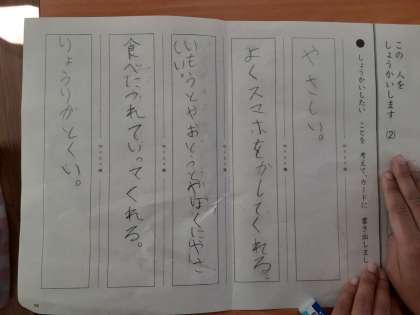 この 人を
しょうかいします (2)
● しょうかいしたい ことを 考えて、カードに 書き出しまし
やさしい。
よくスマホをかしてくれる。
いもうとやおとうとやぼくにやさ
しい。
食べにつれていってくれる。
りょうりがとくい。